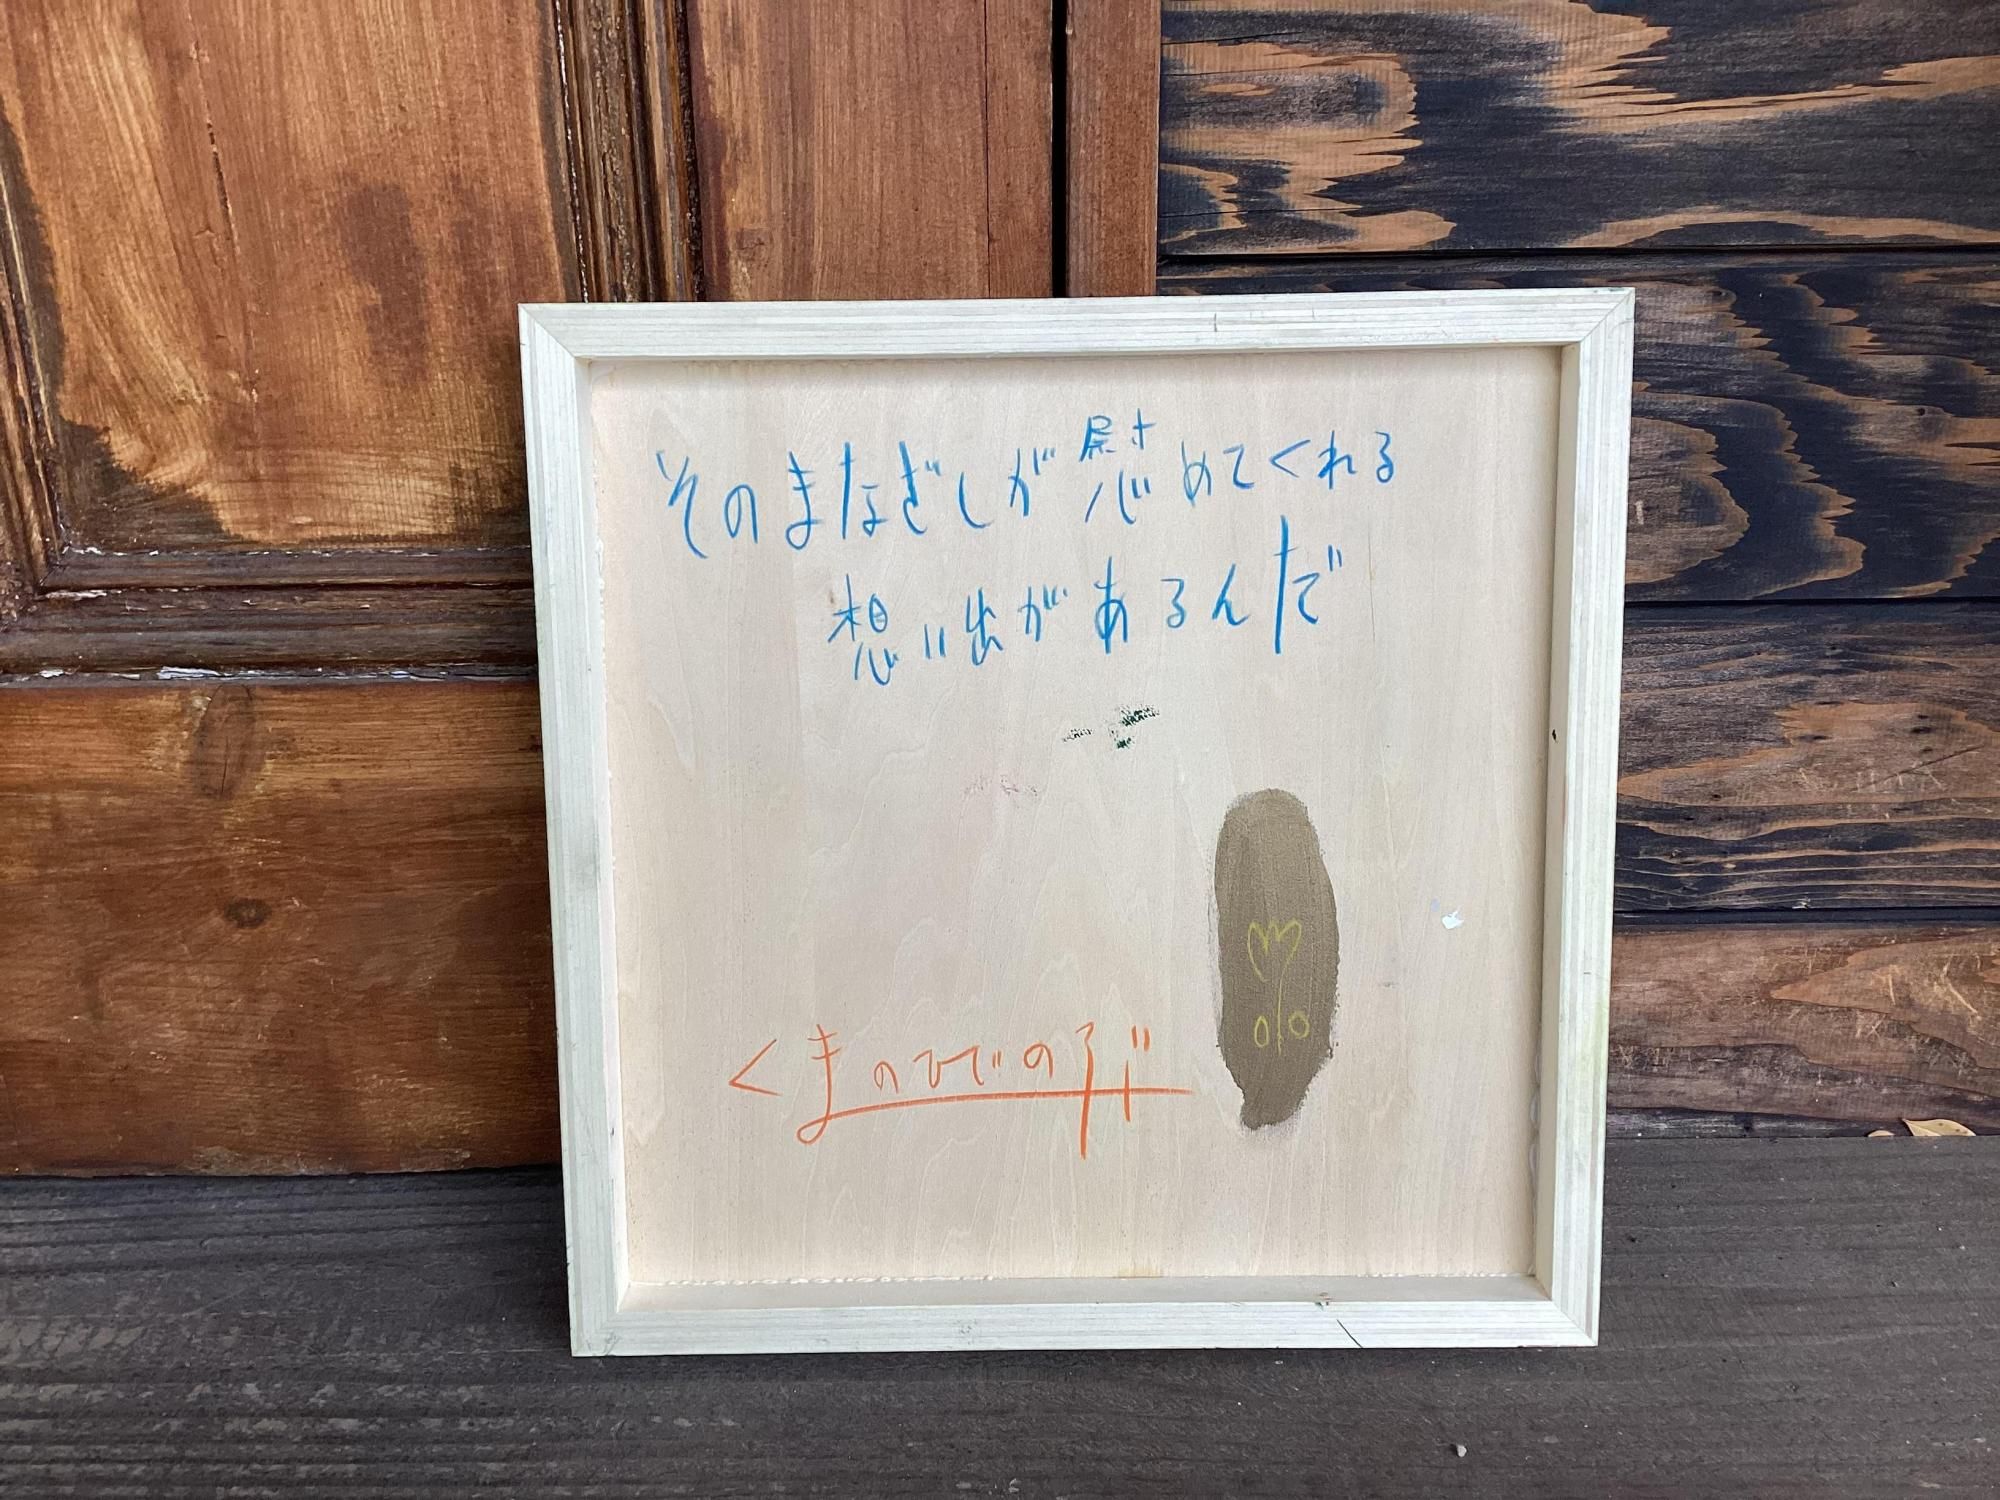 そのまなざしが慰めてくれる
想い出があるんだ
くまのひでのぶ